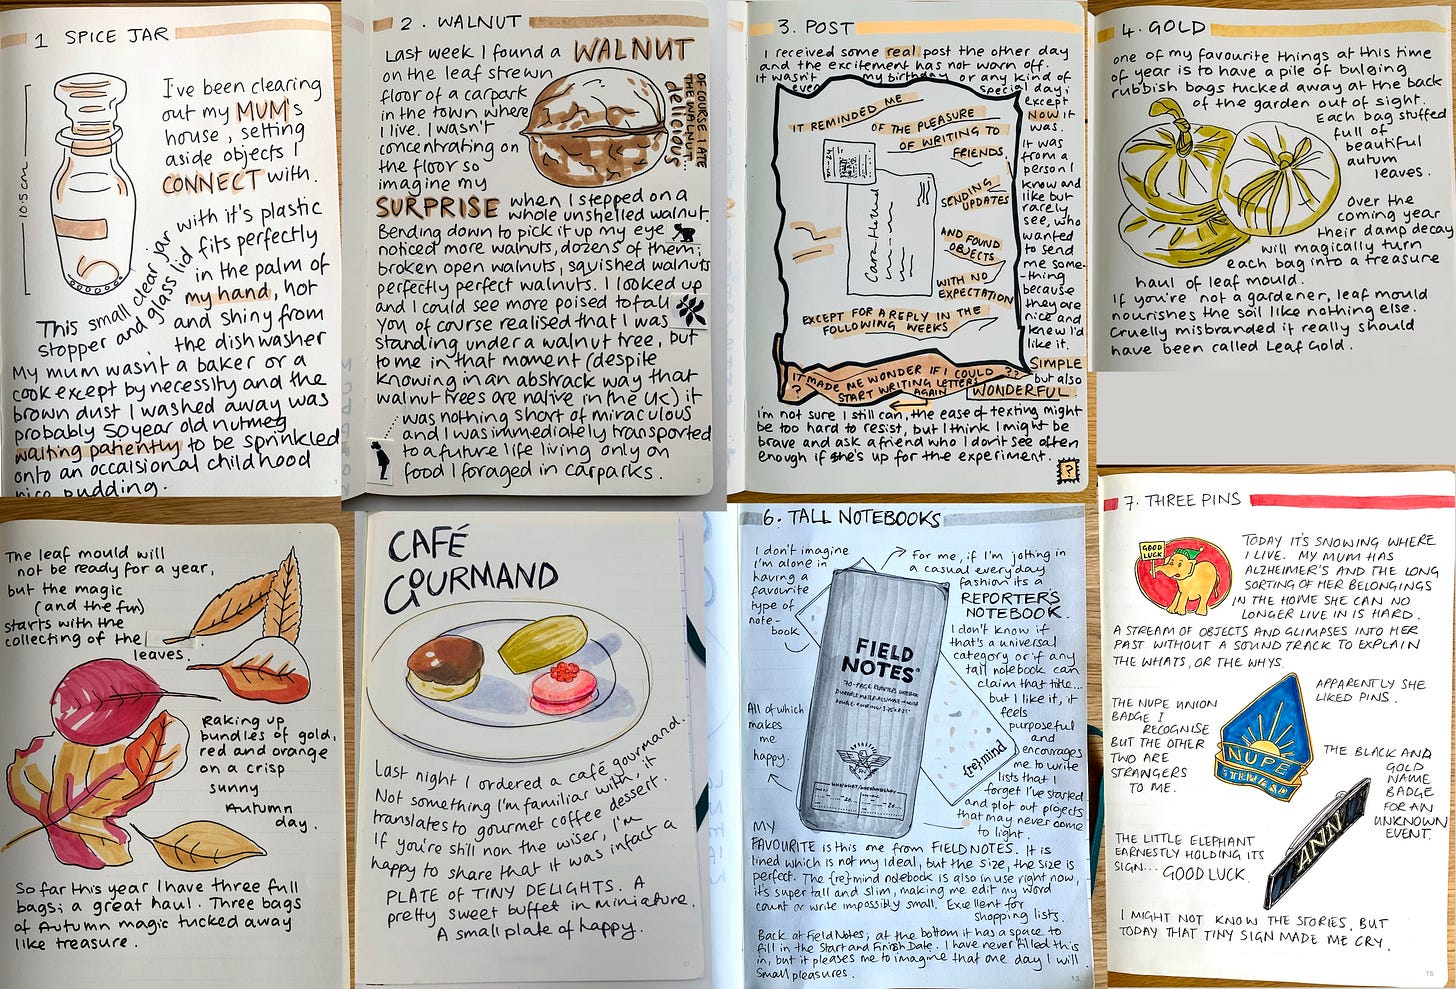 1 SPICE JAR
10.5cm
I've been clearing
out my MUM's
house, setting
aside objects I
CONNECT with.
This small clear jar with it's plastic
stopper and glass lid fits perfectly
in the palm of
my hand, hot
and shiny from
the dishwasher
My mum wasn't a baker or a
cook except by necessity and the
brown dust I washed away was
probably 50 year old nutmeg
waiting patiently to be sprinkled
onto an occaisional childhood
rice pudding.
2. WALNUT
Last week I found a WALNUT
on the leaf strewn
floor of a carpark
in the town where
I live. I wasn't
concentrating on
the floor so
imagine my
SURPRISE when I stepped on a
whole unshelled walnut.
Bending down to pick it up my eye
noticed more walnuts, dozens of them;
broken open walnuts, squished walnuts
perfectly perfect walnuts. I looked up
and I could see more poised to fall
You of course realised that I was
standing under a walnut tree, but
to me in that moment (despite
knowing in an abstrack way that
walnut trees are native in the UK) it
was nothing short of miraculous
and I was immediately transported
to a future life living only on
food I foraged in carparks.
OF COURSE I ATE
THE WALNUT...
delicious
3. POST
I received some real post the other day
and the excitement has not worn off.
It wasn't my birthday or any kind of
even special day;
except
NOW it
was.
It was
from a
person I
know and
like but
rarely
see, who
wanted
to send
me some-
-thing
because
they are
nice and
knew I'd
like it.
SIMPLE
but also
WONDERFUL
IT REMINDED ME
OF THE PLEASURE
OF WRITING TO
FRIENDS
SENDING
UPDATES
AND FOUND
OBJECTS
WITH NO
EXPECTATION
EXCEPT FOR A REPLY IN THE
FOLLOWING WEEKS
Cara Holland
IT MADE ME WONDER IF I COULD ??
? START WRITING LETTERS
AGAIN
I'm not sure I still can, the ease of texting might
be too hard to resist, but I think I might be
brave and ask a friend who I don't see often
enough if she's up for the experiment.
?
4. GOLD
one of my favourite things at this time
of year is to have a pile of bulging
rubbish bags tucked away at the back
of the garden out of sight.
Each bag stuffed
full of
beautiful
autum
leaves.
Over the
coming year
their damp decay
will magically turn
each bag into a treasure
haul of leaf mould.
If you're not a gardener, leaf mould
nourishes the soil like nothing else.
Cruelly misbranded it really should
have been called Leaf Gold.
The leaf mould will
not be ready for a year,
but the magic
(and the fun)
starts with the
collecting of the
leaves.
Raking up
bundles of gold,
red and orange
on a crisp
sunny
Autumn
day.
So far this year I have three full
bags; a great haul. Three bags
of Autumn magic tucked away
like treasure.
CAFÉ
GOURMAND
Last night I ordered a café gourmand...
Not something I'm familiar with, it
translates to gourmet coffee dessert.
If you're still non the wiser, I'm
happy to share that it was infact a
PLATE of TINY DELIGHTS. A
pretty sweet buffet in miniature.
A small plate of happy.
11
6. TALL NOTEBOOKS
I don't imagine
I'm alone in
having a
favourite
type of
note-
book
For me, if I'm jotting in
a casual everyday
fashion its a
REPORTER'S
NOTEBOOK.
I don't know if
that's a universal
category or if any
tall notebook can
claim that title...
but I like it, it
feels
purposeful
and
encourages
me to write
lists that I
forget I've started
and plot out projects
that may never come
to light.
All of which
makes
me
happy.
FIELD
NOTES
{re}mind
MY
FAVOURITE is this one from FIELD NOTES. It is
lined which is not my ideal, but the size, the size is
perfect. The {re}mind notebook is also in use right now,
it's super tall and slim, making me edit my word
count or write impossibly small. Excellent for
shopping lists.
Back at FieldNotes; at the bottom it has a space to
fill in the Start and Finish Date. I have never filled this
in, but it pleases me to imagine that one day I will.
Small pleasures.
13
7. THREE PINS
GOOD
LUCK
TODAY IT'S SNOWING WHERE
I LIVE. MY MUM HAS
ALZHEIMER'S AND THE LONG
SORTING OF HER BELONGINGS
IN THE HOME SHE CAN NO
LONGER LIVE IN IS HARD.
A STREAM OF OBJECTS AND GLIMPSES INTO HER
PAST WITHOUT A SOUND TRACK TO EXPLAIN
THE WHATS, OR THE WHYS.
APPARENTLY SHE
LIKED PINS.
THE NUPE UNION
BADGE I
RECOGNISE
BUT THE OTHER
TWO ARE
STRANGERS
TO ME.
NUPE
STEWARD
THE BLACK AND
GOLD
NAME
BADGE
FOR AN
UNKNOWN
EVENT.
ANN
THE LITTLE ELEPHANT
EARNESTLY HOLDING ITS
SIGN... GOOD LUCK.
I MIGHT NOT KNOW THE STORIES, BUT
TODAY THAT TINY SIGN MADE ME CRY.
15